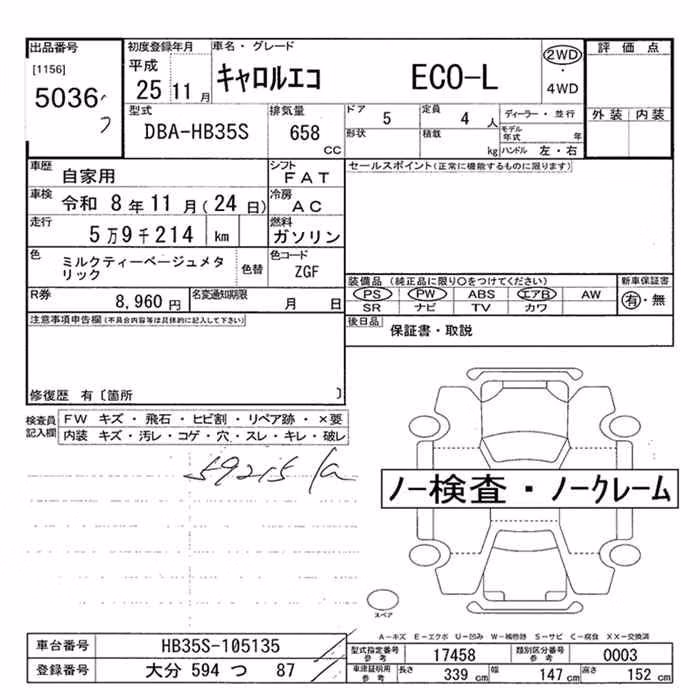 出品番号
[1156]
5036
初度登録年月
平成
25 11 月
車名・グレード
キャロルエコ ECO-L
2WD
・
4WD
評価点
外装 内装
型式
DBA-HB35S
排気量
658
CC
ドア
5
定員
4 人
形状
積載
kg
ディーラー・並行
モデル
年式 年
ハンドル 左・右
車歴
自家用
シフト
FAT
セールスポイント(正常に機能するものに限ります)
車検
令和 8 年 11 月 (24 日)
冷房
AC
走行
5 万 9 千 214 km
燃料
ガソリン
色
ミルクティーベージュメタ
リック
色替
色コード
ZGF
装備品 (純正品に限り○をつけてください)
新車保証書
PS PW ABS エアB AW
SR ナビ TV カワ
有・無
R券
8,960 円
名変通知期限
月 日
後日品
保証書・取説
注意事項申告欄(不具合内容等は具体的に記入して下さい)
修復歴 有〔箇所 〕
検査員
記入欄
FW キズ・飛石・ヒビ割・リペア跡・×要
内装 キズ・汚レ・コゲ・穴・スレ・キレ・破レ
59215
ノー検査・ノークレーム
スペア
A-キズ E-エクボ U-凹み W-補修跡 S-サビ C-腐食 XX-交換済
車台番号
HB35S-105135
登録番号
大分 594 つ 87
型式指定番号
参考
17458
類別区分番号
参考
0003
車庫証明用
参考
長さ
339 cm
幅
147 cm
高さ
152 cm